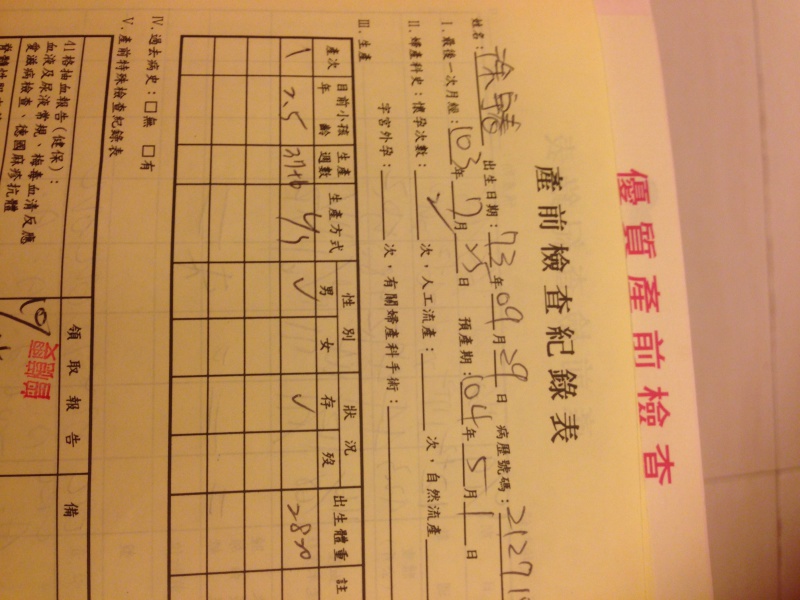 優質產前檢查
產前檢查紀錄表
姓名： 出生日期：73年09月29日 病歷號碼：21271
I. 最後一次月經：103年7月25日 預產期：104年5月1日
II. 婦產科史：懷孕次數：2次，人工流產：次，自然流產
子宮外孕：次，有關婦產科手術：
III. 生產
產次 目前小孩年齡 生產週數 生產方式 性別 狀況 出生體重 註
男 女 存 歿
1 2.5 ✓ ✓ 2820
IV. 過去病史：□無 □有
V. 產前特殊檢查紀錄表
領取報告 備
41格抽血報告(健保)：
血液及尿液常規、梅毒血清反應
愛滋病檢查、德國麻疹抗體